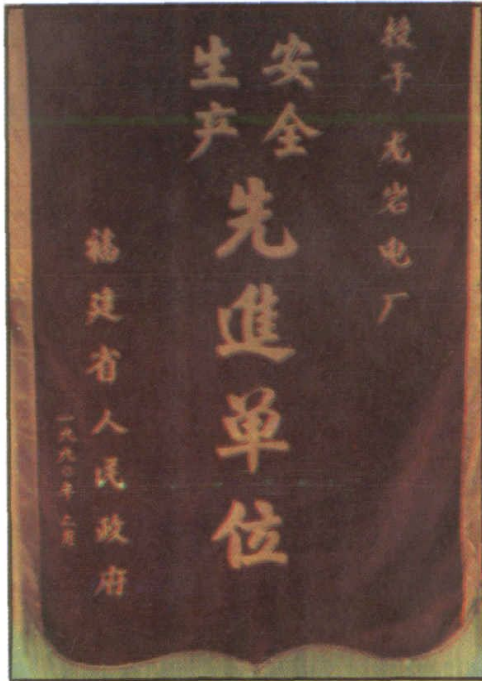 授予 龙岩电厂
安全
生产
先進单位
福建省人民政府
一九九〇年